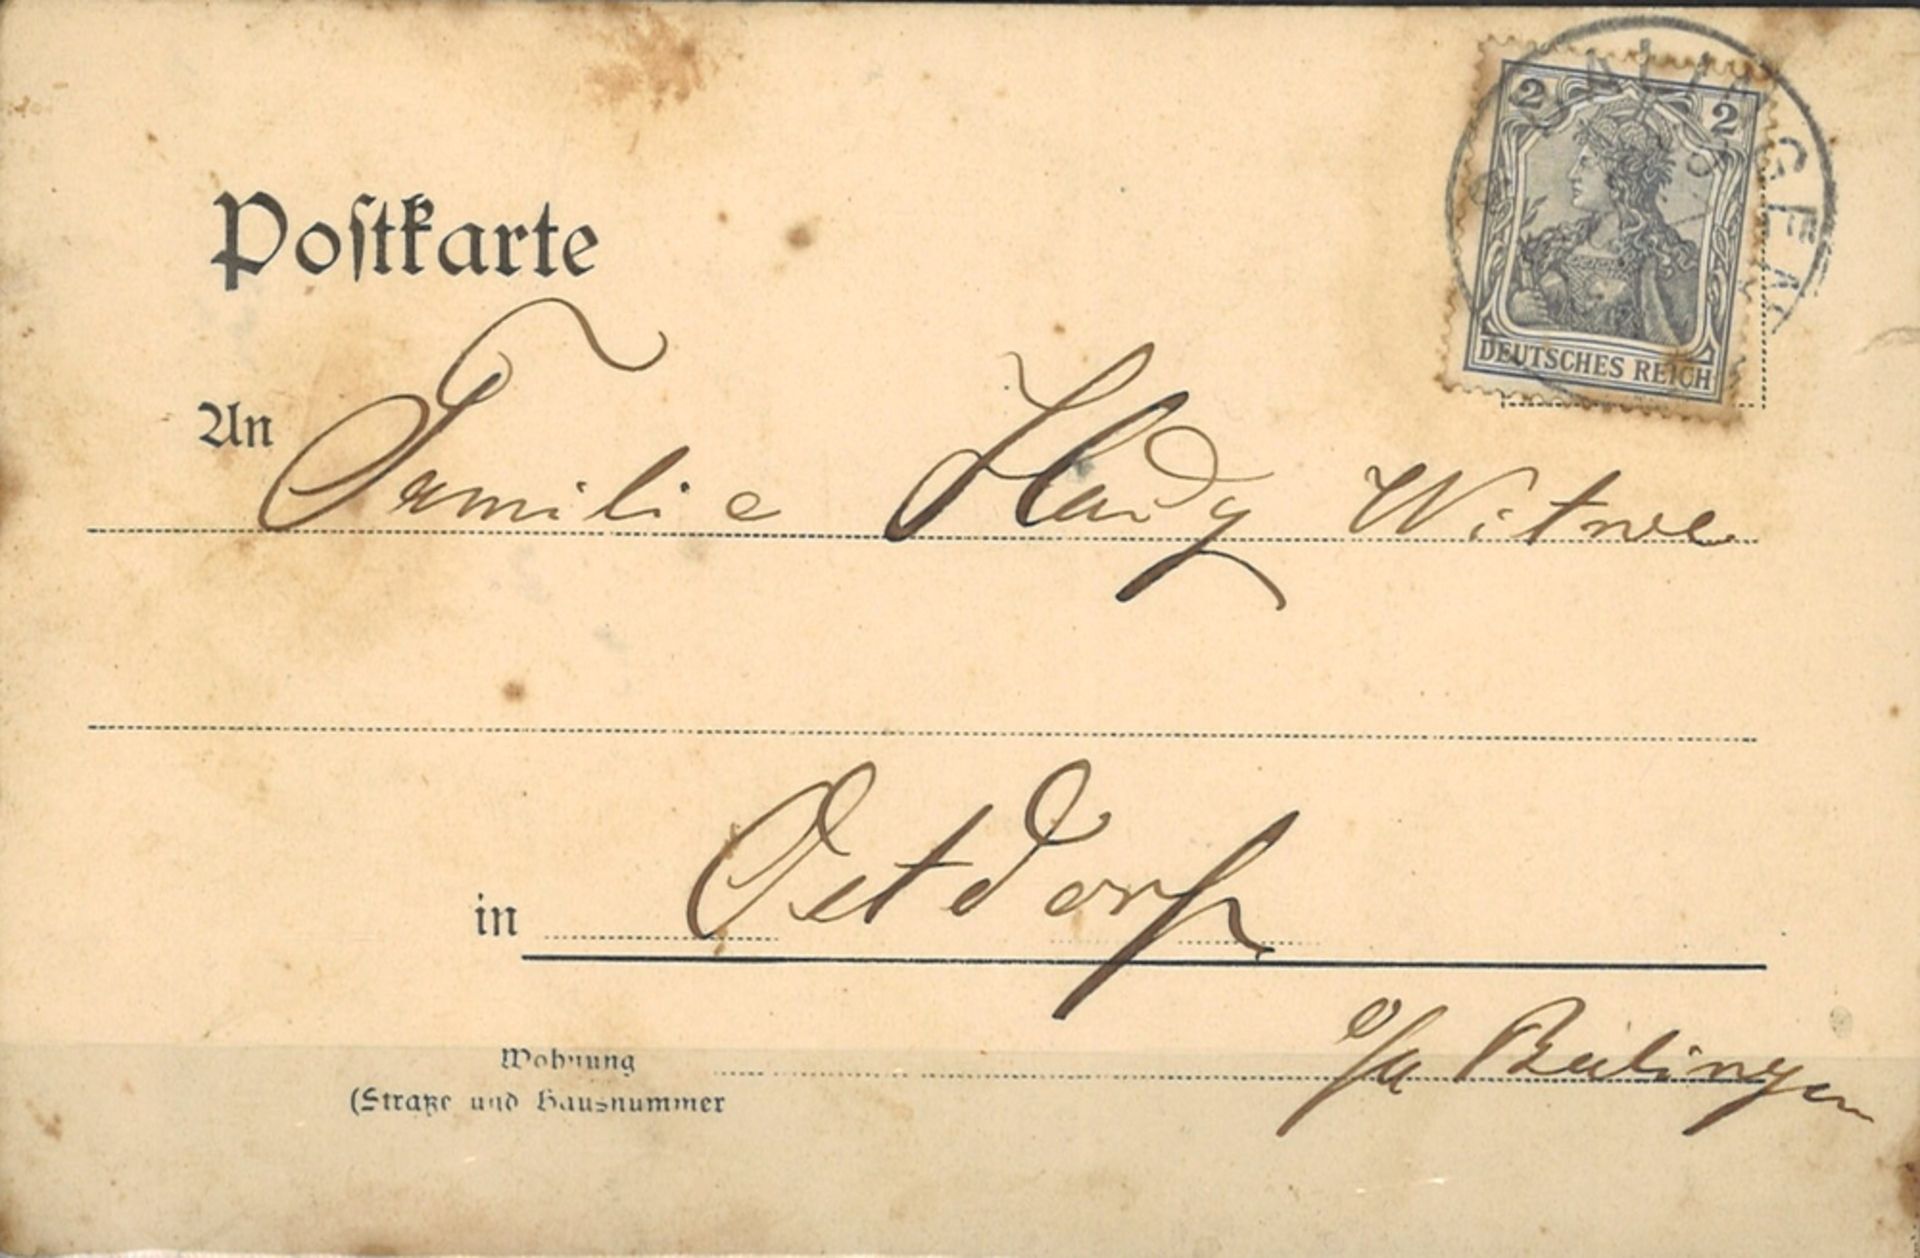 2 2
DEUTSCHES REICH
Postkarte
An Familie Haudy Witwe
in Ostdorf
O/A Balingen
Wohnung
(Straße und Hausnummer